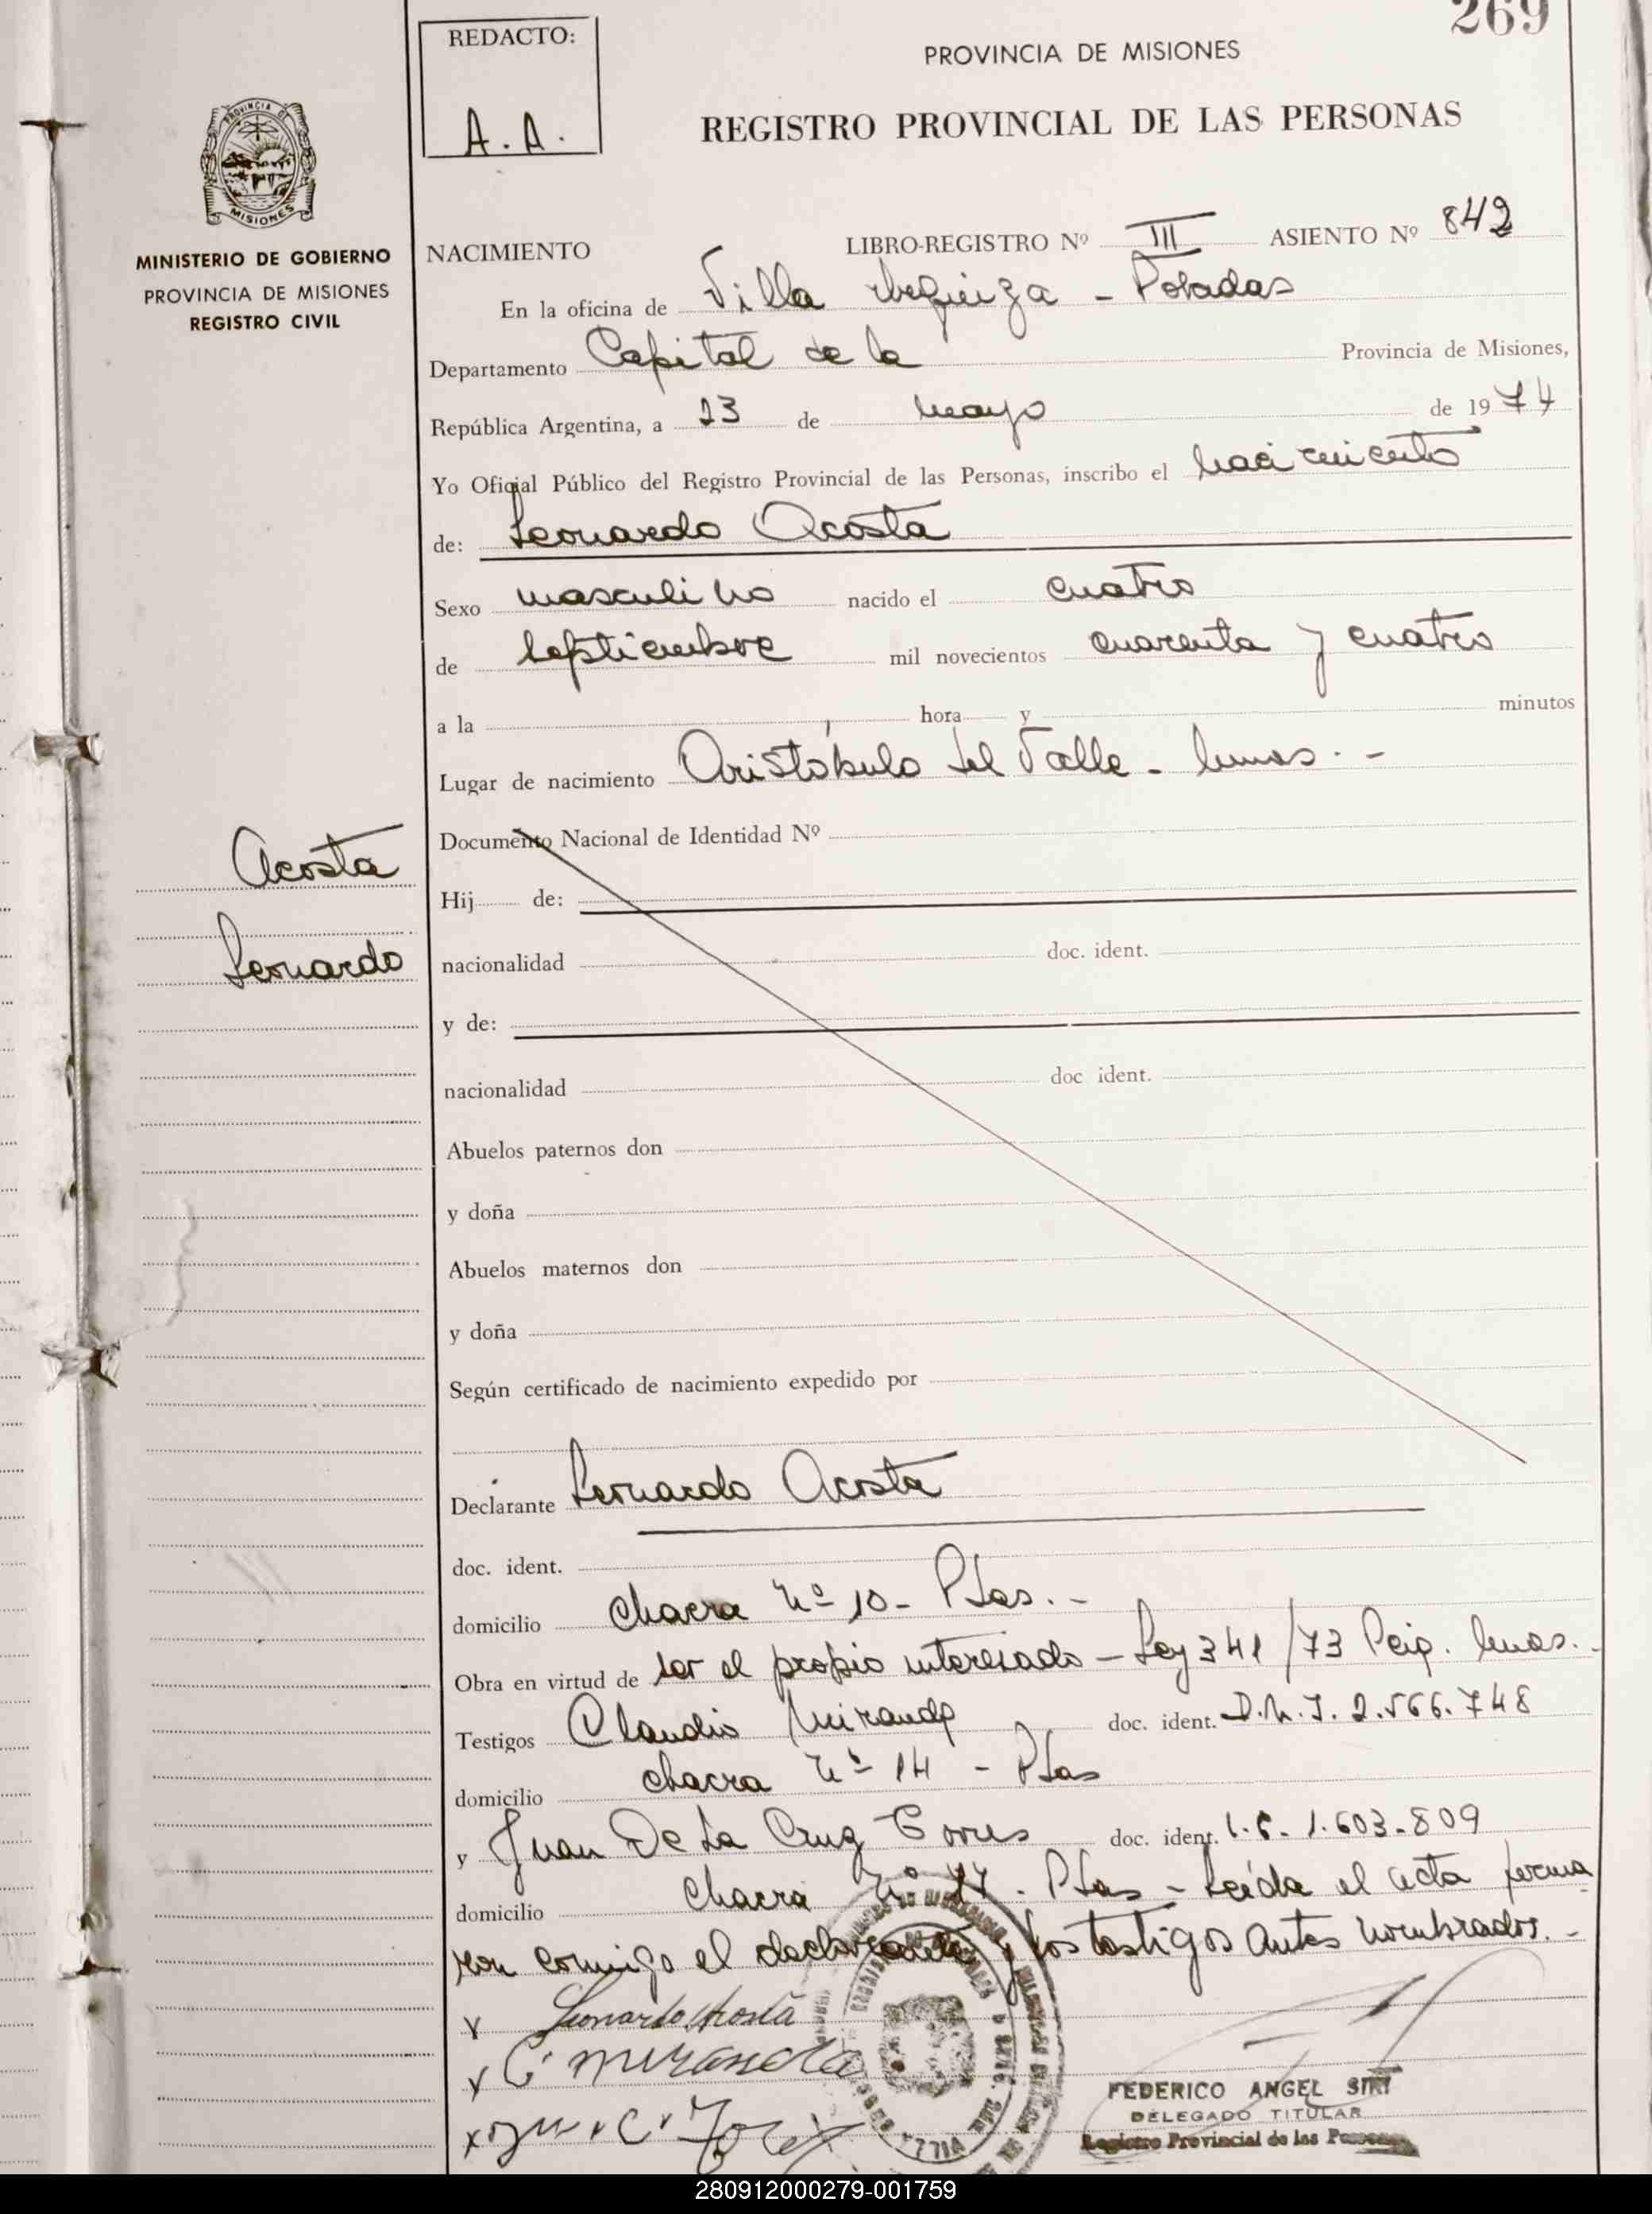 269
REDACTO:
A.A.
PROVINCIA DE MISIONES
REGISTRO PROVINCIAL DE LAS PERSONAS
PROVINCIA DE
MISIONES
MINISTERIO DE GOBIERNO
PROVINCIA DE MISIONES
REGISTRO CIVIL
NACIMIENTO LIBRO-REGISTRO Nº III ASIENTO Nº 842
En la oficina de Villa Urquiza - Posadas
Departamento Capital de la Provincia de Misiones,
República Argentina, a 23 de mayo de 1974
Yo Oficial Público del Registro Provincial de las Personas, inscribo el nacimiento
de: Leonardo Acosta
Sexo masculino nacido el cuatro
de septiembre mil novecientos cuarenta y cuatro
a la hora y minutos
Lugar de nacimiento Aristóbulo del Valle - Mnes. -
Documento Nacional de Identidad Nº
Acosta
Leonardo
Hij de:
nacionalidad doc. ident.
y de:
nacionalidad doc ident.
Abuelos paternos don
y doña
Abuelos maternos don
y doña
Según certificado de nacimiento expedido por
Declarante Leonardo Acosta
doc. ident.
domicilio Chacra Nº 10 - Pdas. -
Obra en virtud de ser el propio interesado - Ley 341/73 Mnes. -
Testigos Claudio Miranda doc. ident. D.N.I. 2.566.748
domicilio chacra Nº 14 - Pdas
y Juan De La Cruz Torres doc. ident. 1.603.809
domicilio Chacra Nº Pdas - Leída el acta firma
ron conmigo el declarante y los testigos antes nombrados. -
x Leonardo Acosta
x C. miranda
x
FEDERICO ANGEL SIRI
DELEGADO TITULAR
Registro Provincial de las Personas
280912000279-001759